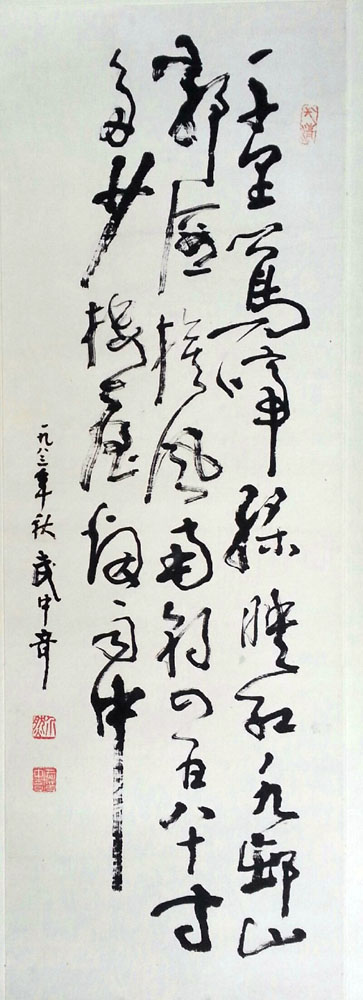 千里鶯啼綠映紅水邨山
郭酒旗風南朝四百八十寺
多少樓臺煙雨中
一九八三年秋 武中奇